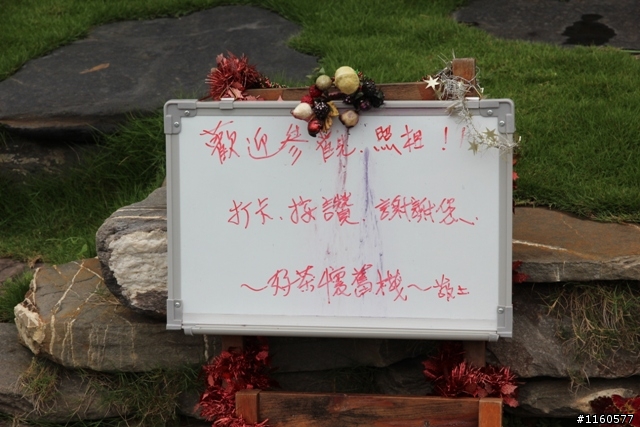 歡迎參觀.照相！
打卡、按讚、謝謝您.
～好茶懷舊棧～敬上
#1160577